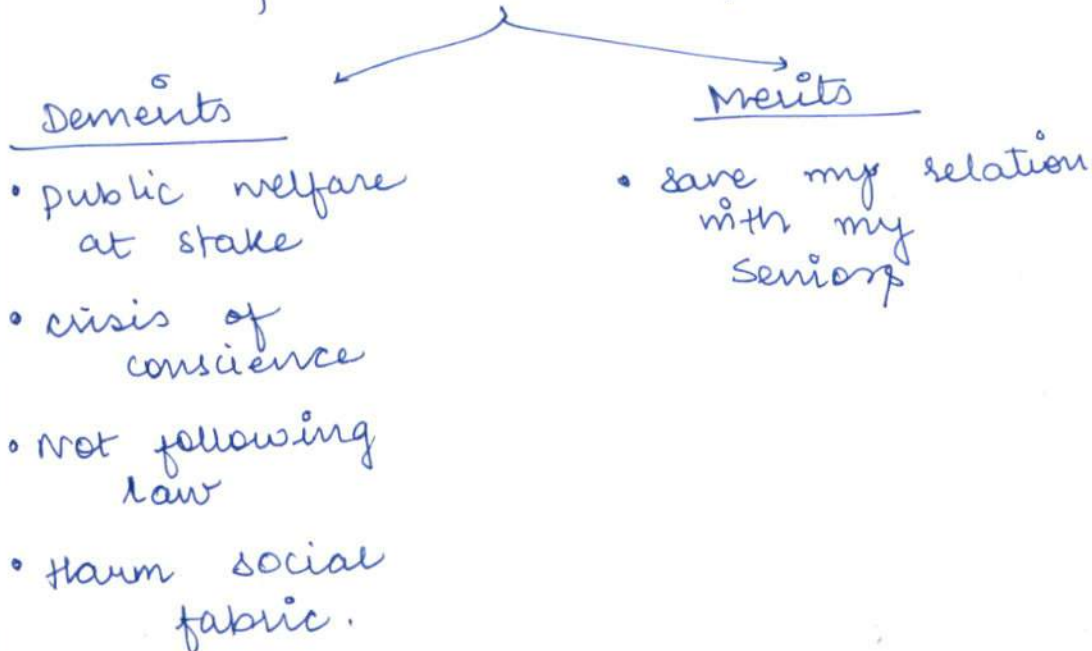 Demerits
• public welfare
at stake
• crisis of
conscience
• Not following
law
• Harm social
fabric.
Merits
• save my relation
with my
seniors